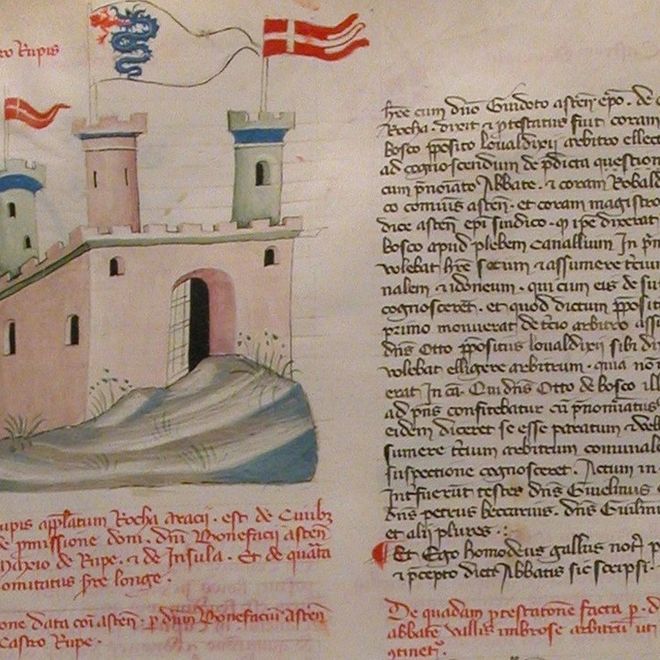 ro Rupis
upis appllatum Rocha aracij . est de Cuubz
e pmissione domi . dni Bonefacij asten
archio de Rupe . & de Insula . Et de quata
omitatus hre longe .
one data coi asten . p dnm Bonefacium asten
Castro Rupe .
hre cum dno Guidoto asten epo . de
Rocha . dixit & ptestatus fuit coram
bosco pposito loualdixij arbitro ellec
ad cognoscendum de pdicta question
cum pnoiato Abbate . & coram Robald
co comunis asten . et coram magistro
dice asten epi sindico . qd ipe dixerat
bosco apud plebem Canallium In pn
volebat hre secum & assumere tcium
nalem & idoneum . qui cum eis de
cognosceret . et quod dictum pposit
primo monuerat de tcio arbitro ass
dns Otto ppositus loualdixij sibi di
volebat elligere arbitrum . quia no
erat In ca . Qui dns Otto de bosco ill
ad pns confitebatur qd pnominatus
eidem diceret se esse paratum & vel
sumere tcium arbitrum comunale
Inspectione cognosceret . Actum in
Int fuerunt testes dns Guielmus
dns petrus beccarius . dns Guilm
et alij plures .
Et Ego homodeus gallus not p
& pcepto dicti Abbatis sic scripsi .
De quadam ptestatone facta p . d
abbate vallis umbrose arbitru uti
9tinet